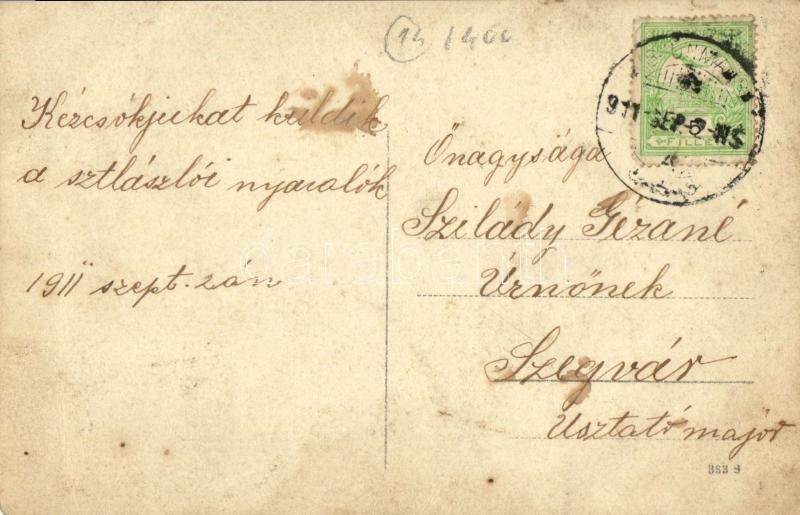 13 1400
Kézcsókjukat küldik
a sztlászlói nyaralók
1911 szept. 2án
911 SEP. 2-N5
FILLÉR
Önagysága
Szilády Gézané
Úrnőnek
Szegvár
Usztató major
383 9
darabanth